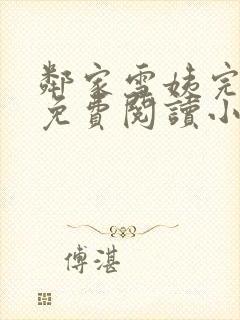 鄰家雪姨完
免費閱讀小
傅湛